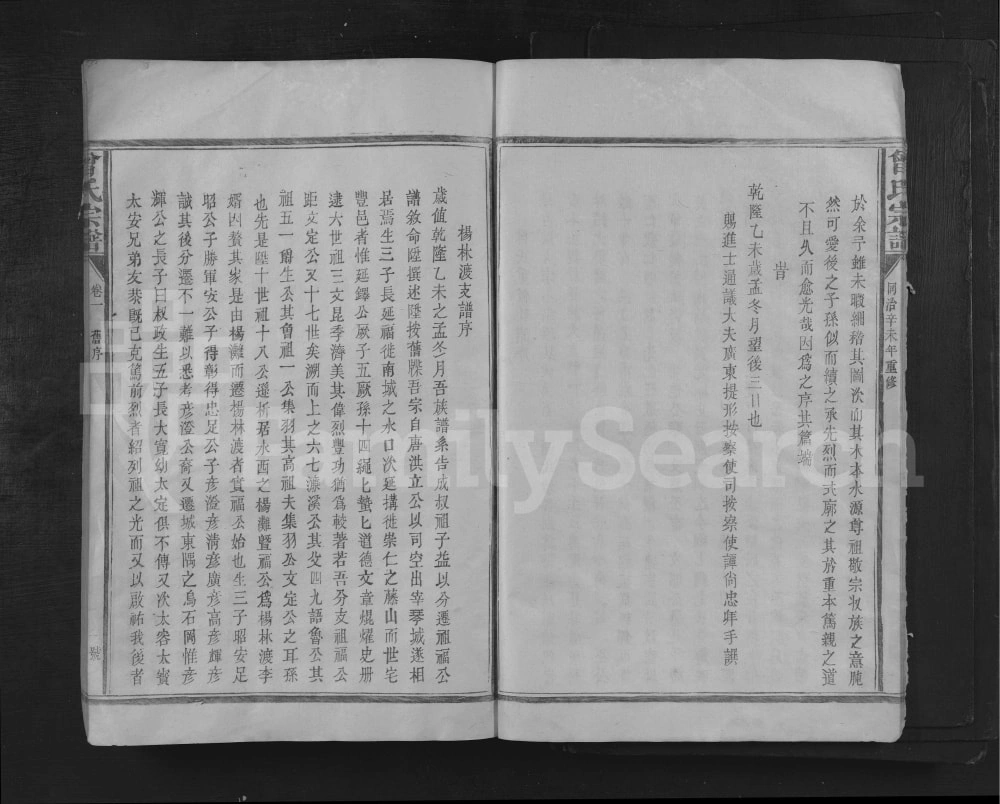 曾氏宗譜
同治辛未年重修
於余予雖未暇細稽其圖次而其木本水源尊祖敬宗收族之意肫
然可愛後之子孫似而續之承先烈而式廓之其於重本篤親之道
不且久而愈光哉因爲之序其篇端
旹
乾隆乙未歲孟冬月望後三日也
賜進士通議大夫廣東提形按察使司按察使譚尙忠拜手譔
楊林渡支譜序
歲值乾隆乙未之孟冬月吾族譜系告成叔祖子益以分遷祖福公
譜敘命陞撰述陞按舊牒吾宗自唐洪立公以司空出宰琴城遂相
居焉生三子長延福徙南城之水口次延構徙崇仁之藤山而世宅
豐邑者惟延鐸公厥子五厥孫十四繩七蟄七道德文章焜燿史册
逮六世祖三文昆季濟美其偉烈豐功猶爲較著若吾分支祖福公
距文定公又十七世矣溯而上之六七濂溪公其父四九語魯公其
祖五一爵生公其曾祖一公集羽其高祖夫集羽公文定公之耳孫
也先是陞十世祖十八公遜析居水西之楊灘暨福公爲楊林渡李
婿因贅其家是由楊灘而遷楊林渡者實福公始也生三子昭安足
昭公子勝軍安公子得彰得忠足公子彥澄彥淸彥廣彥高彥輝彥
誠其後分遷不一難以悉考彥澄公裔又遷城東隅之烏石岡惟彥
輝公之長子曰叔政生五子長大寬幼太定俱不傳又次太容太實
太安兄弟友恭旣已克篤前烈者紹列祖之光而又以啟祐我後者
曾氏宗譜
卷一
舊序